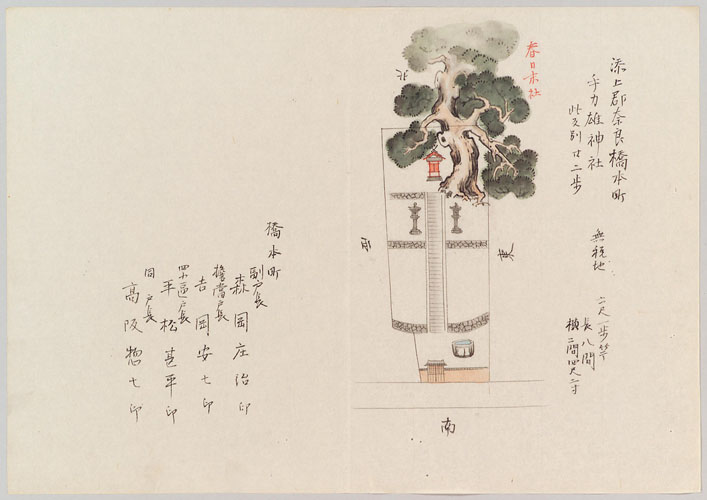 添上郡奈良橋本町
手力雄神社
此反別廿二歩
春日末社
無税地
六尺一歩竿
長八間
横二間四尺二寸
北
東
西
南
橋本町
副戸長
森岡庄治印
吉岡安七印
四小区戸長
平松甚平印
同戸長
高阪惣七印